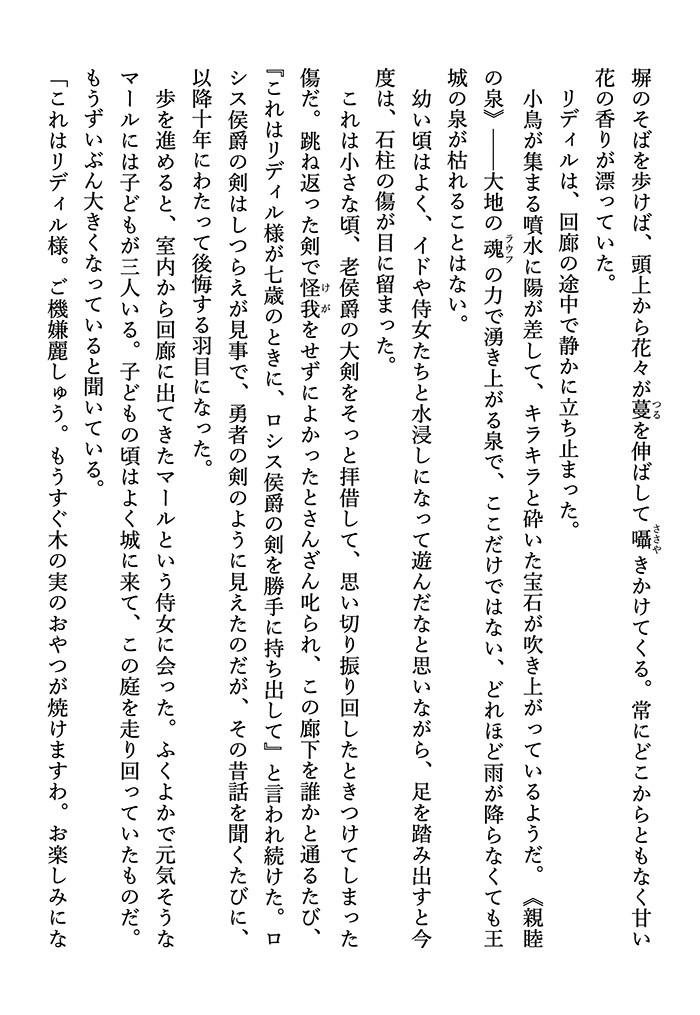 塀のそばを歩けば、頭上から花々が蔓を伸ばして囁きかけてくる。常にどこからともなく甘い
花の香りが漂っていた。
リディルは、回廊の途中で静かに立ち止まった。
小鳥が集まる噴水に陽が差して、キラキラと砕いた宝石が吹き上がっているようだ。《親睦
の泉》――大地の魂の力で湧き上がる泉で、ここだけではない、どれほど雨が降らなくても王
城の泉が枯れることはない。
幼い頃はよく、イドや侍女たちと水浸しになって遊んだなと思いながら、足を踏み出すと今
度は、石柱の傷が目に留まった。
これは小さな頃、老侯爵の大剣をそっと拝借して、思い切り振り回したときつけてしまった
傷だ。跳ね返った剣で怪我をせずによかったとさんざん叱られ、この廊下を誰かと通るたび、
『これはリディル様が七歳のときに、ロシス侯爵の剣を勝手に持ち出して』と言われ続けた。ロ
シス侯爵の剣はしつらえが見事で、勇者の剣のように見えたのだが、その昔話を聞くたびに、
以降十年にわたって後悔する羽目になった。
歩を進めると、室内から回廊に出てきたマールという侍女に会った。ふくよかで元気そうな
マールには子どもが三人いる。子どもの頃はよく城に来て、この庭を走り回っていたものだ。
もうずいぶん大きくなっていると聞いている。
「これはリディル様。ご機嫌麗しゅう。もうすぐ木の実のおやつが焼けますわ。お楽しみにな